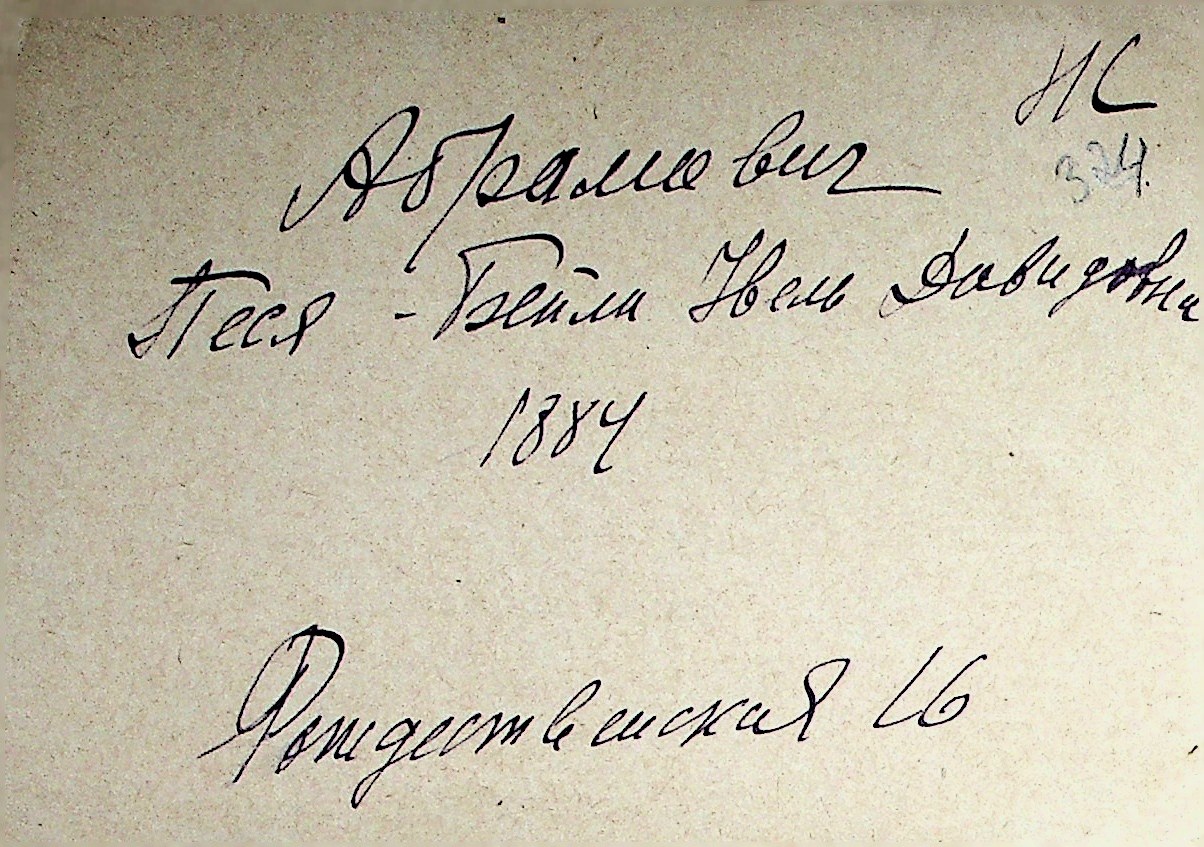 НС
324
Абрамович
Песя - Бейли Ивель Давидовна
1884
Рождественская 16